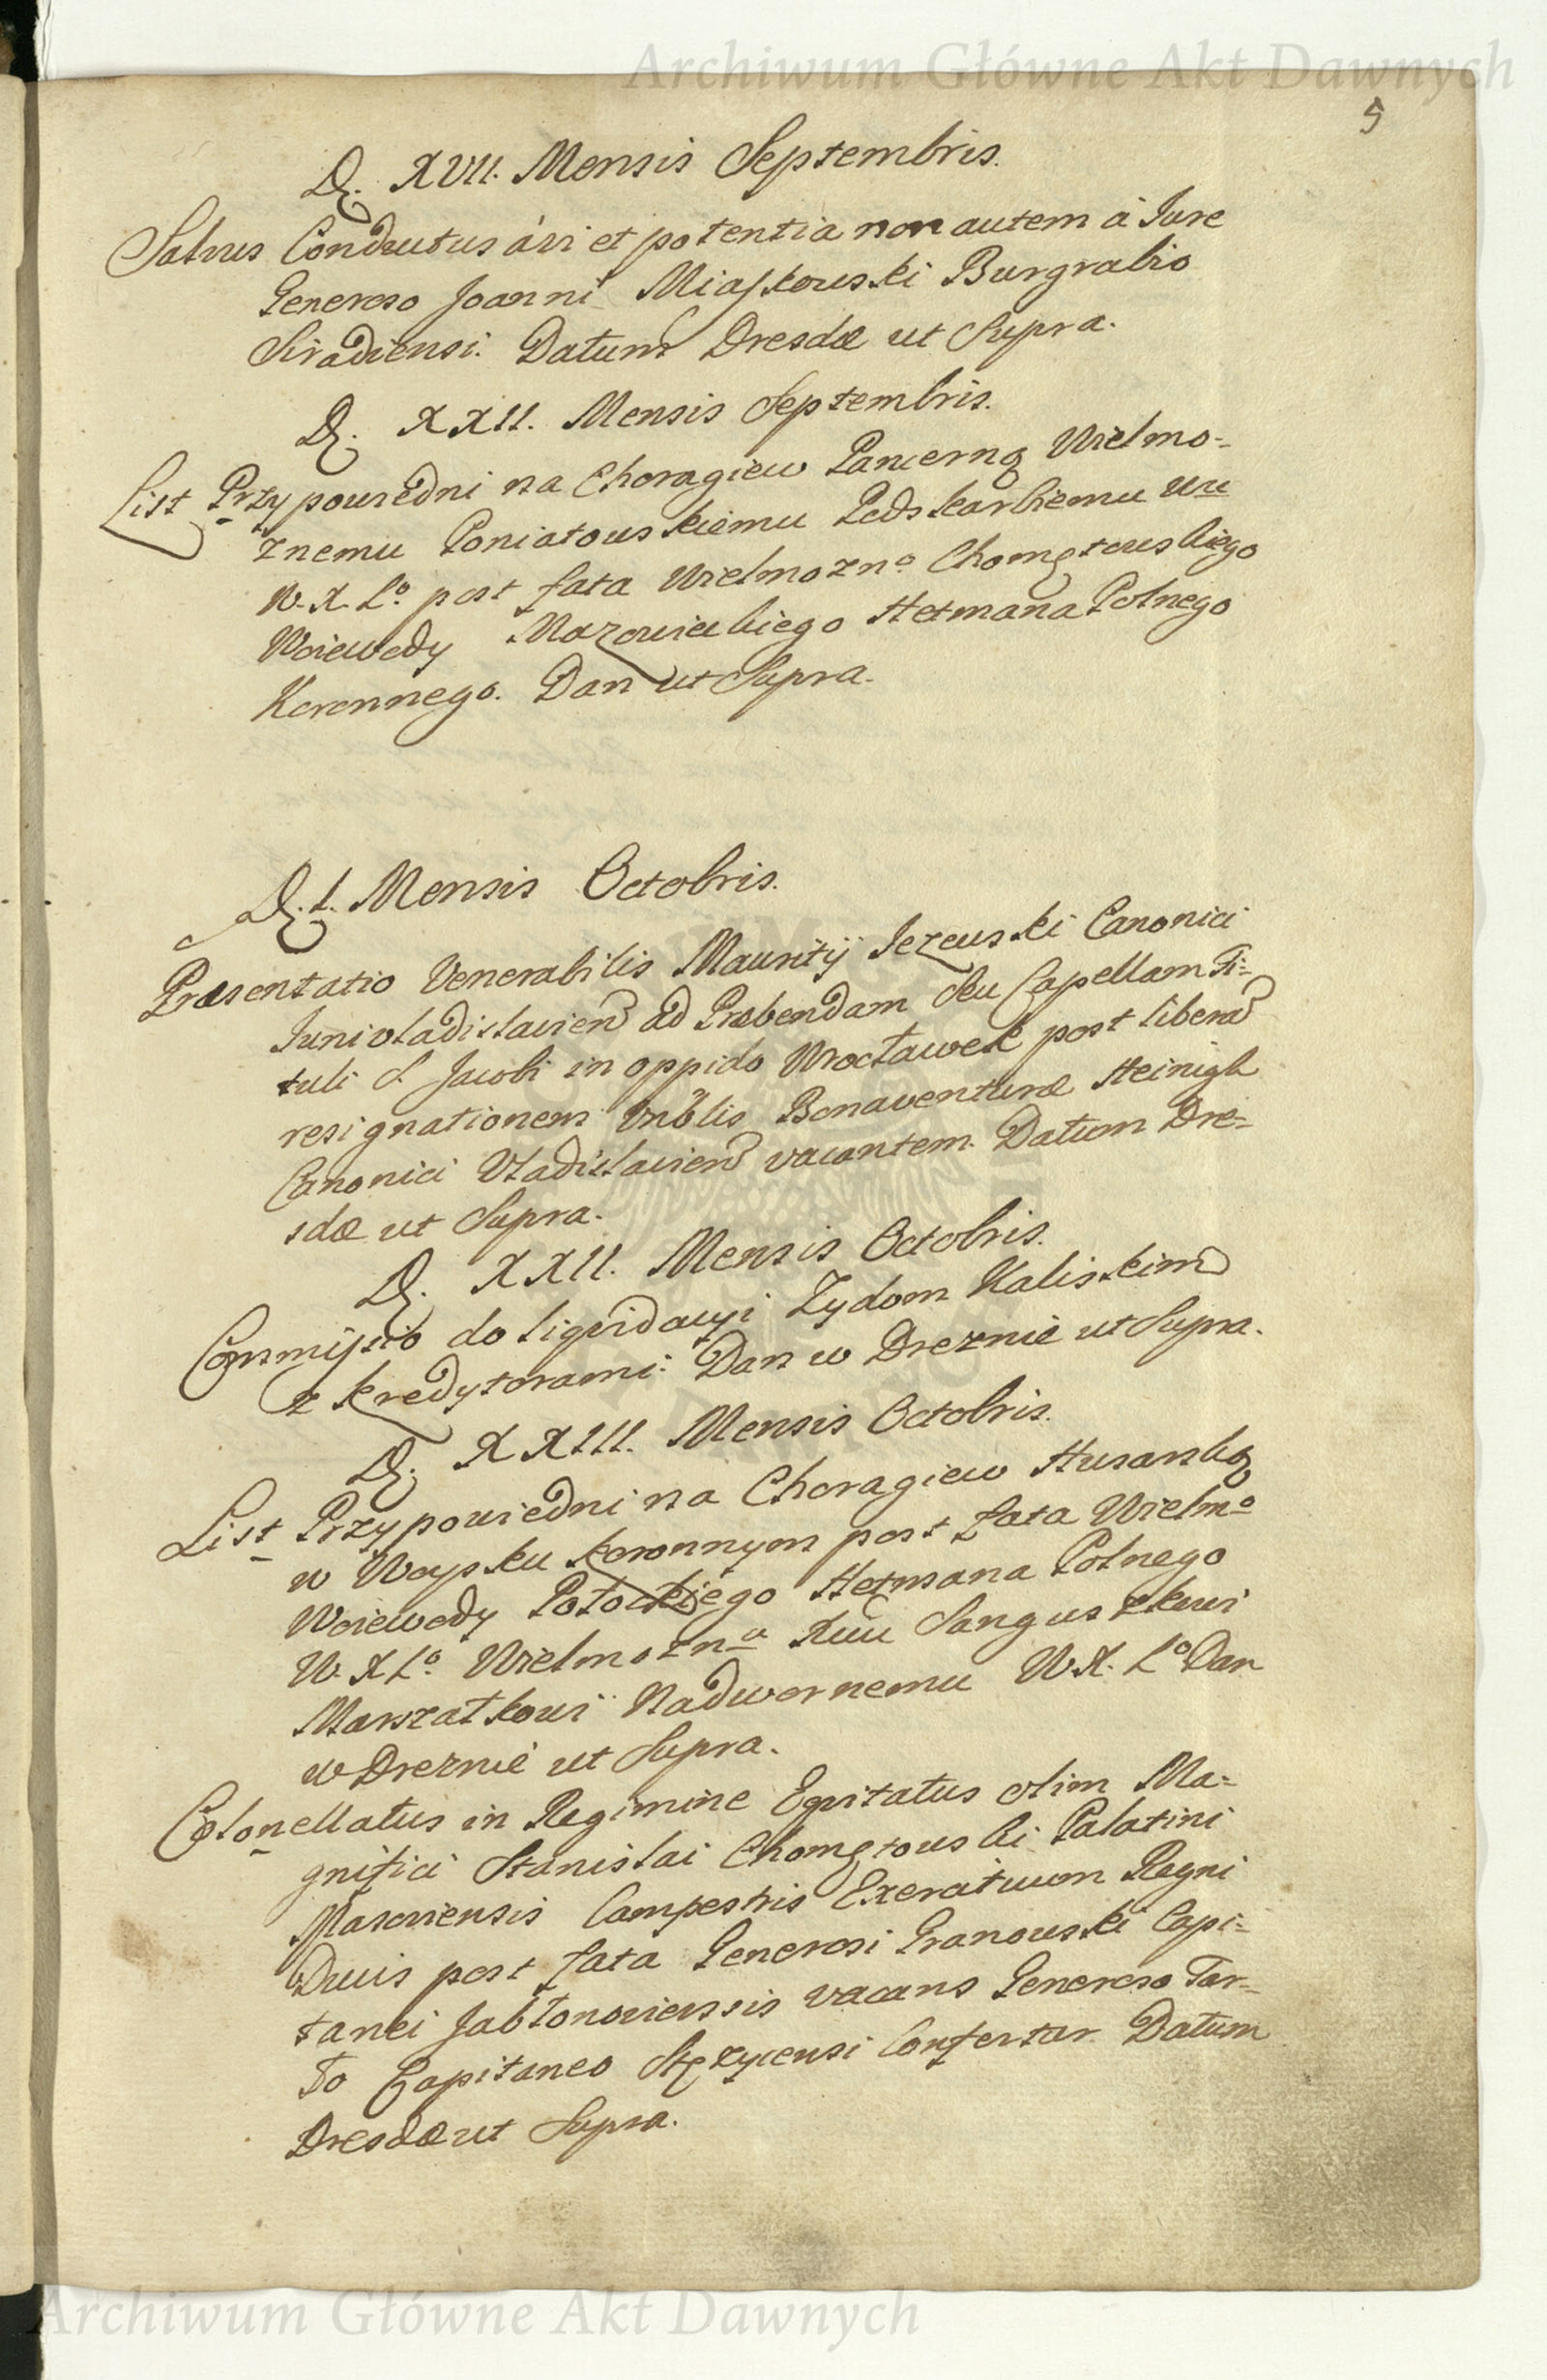 Archiwum Główne Akt Dawnych
5
D. XVII. Mensis Septembris.
Salvus Conductus á vi et potentia non autem á Iure
Generoso Joanni Miaskowski Burgrabio
Siradiensi. Datum Dresdæ ut Supra.
D. XXII. Mensis Septembris.
List Przypowiedni na Choragiew Pancerną Wielmo-
znemu Poniatowskiemu Podskarbiemu
W. X. Lo. post fata Wielmozno Chomętowskiego
Woiewody Mazowieckiego Hetmana Polnego
Koronnego. Dan ut Supra.
D. I. Mensis Octobris.
Præsentatio Venerabilis Mauritij Jezewski Canonici
Junivladislavien ad Præbendam seu Capellam Ti-
tuli S. Jacobi in oppido Wrocławek post liberam
resignationem Vnblis Bonaventuræ Heinigk
Canonici Vladislavien vacantem. Datum Dre-
sdæ ut Supra.
D. XXII. Mensis Octobris.
Commissio do liqvidacyi Zydom Kaliskim
z kredytorami. Dan w Dreznie ut Supra.
D. XXIII. Mensis Octobris.
List Przypowiedni na Choragiew Husarską
w Woysku koronnym post fata Wielmo
Woiewody Potockiego Hetmana Polnego
W. X Lo. Wielmozno Xciu Sanguszkowi
Marszałkowi Nadwornemu W. X. Lo Dan
w Dreznie ut Supra.
Colonellatus in Regimine Eqvitatus olim Ma-
gnifici Stanislai Chomętowski Palatini
Masoviensis Campestris Exercituum Regni
Ducis post fata Generosi Granowski Capi-
tanei Jabłonoviensis vacans Generoso Tar-
ło Capitaneo Stęzycensi Confertur. Datum
Dresdæ ut Supra.
Archiwum Główne Akt Dawnych